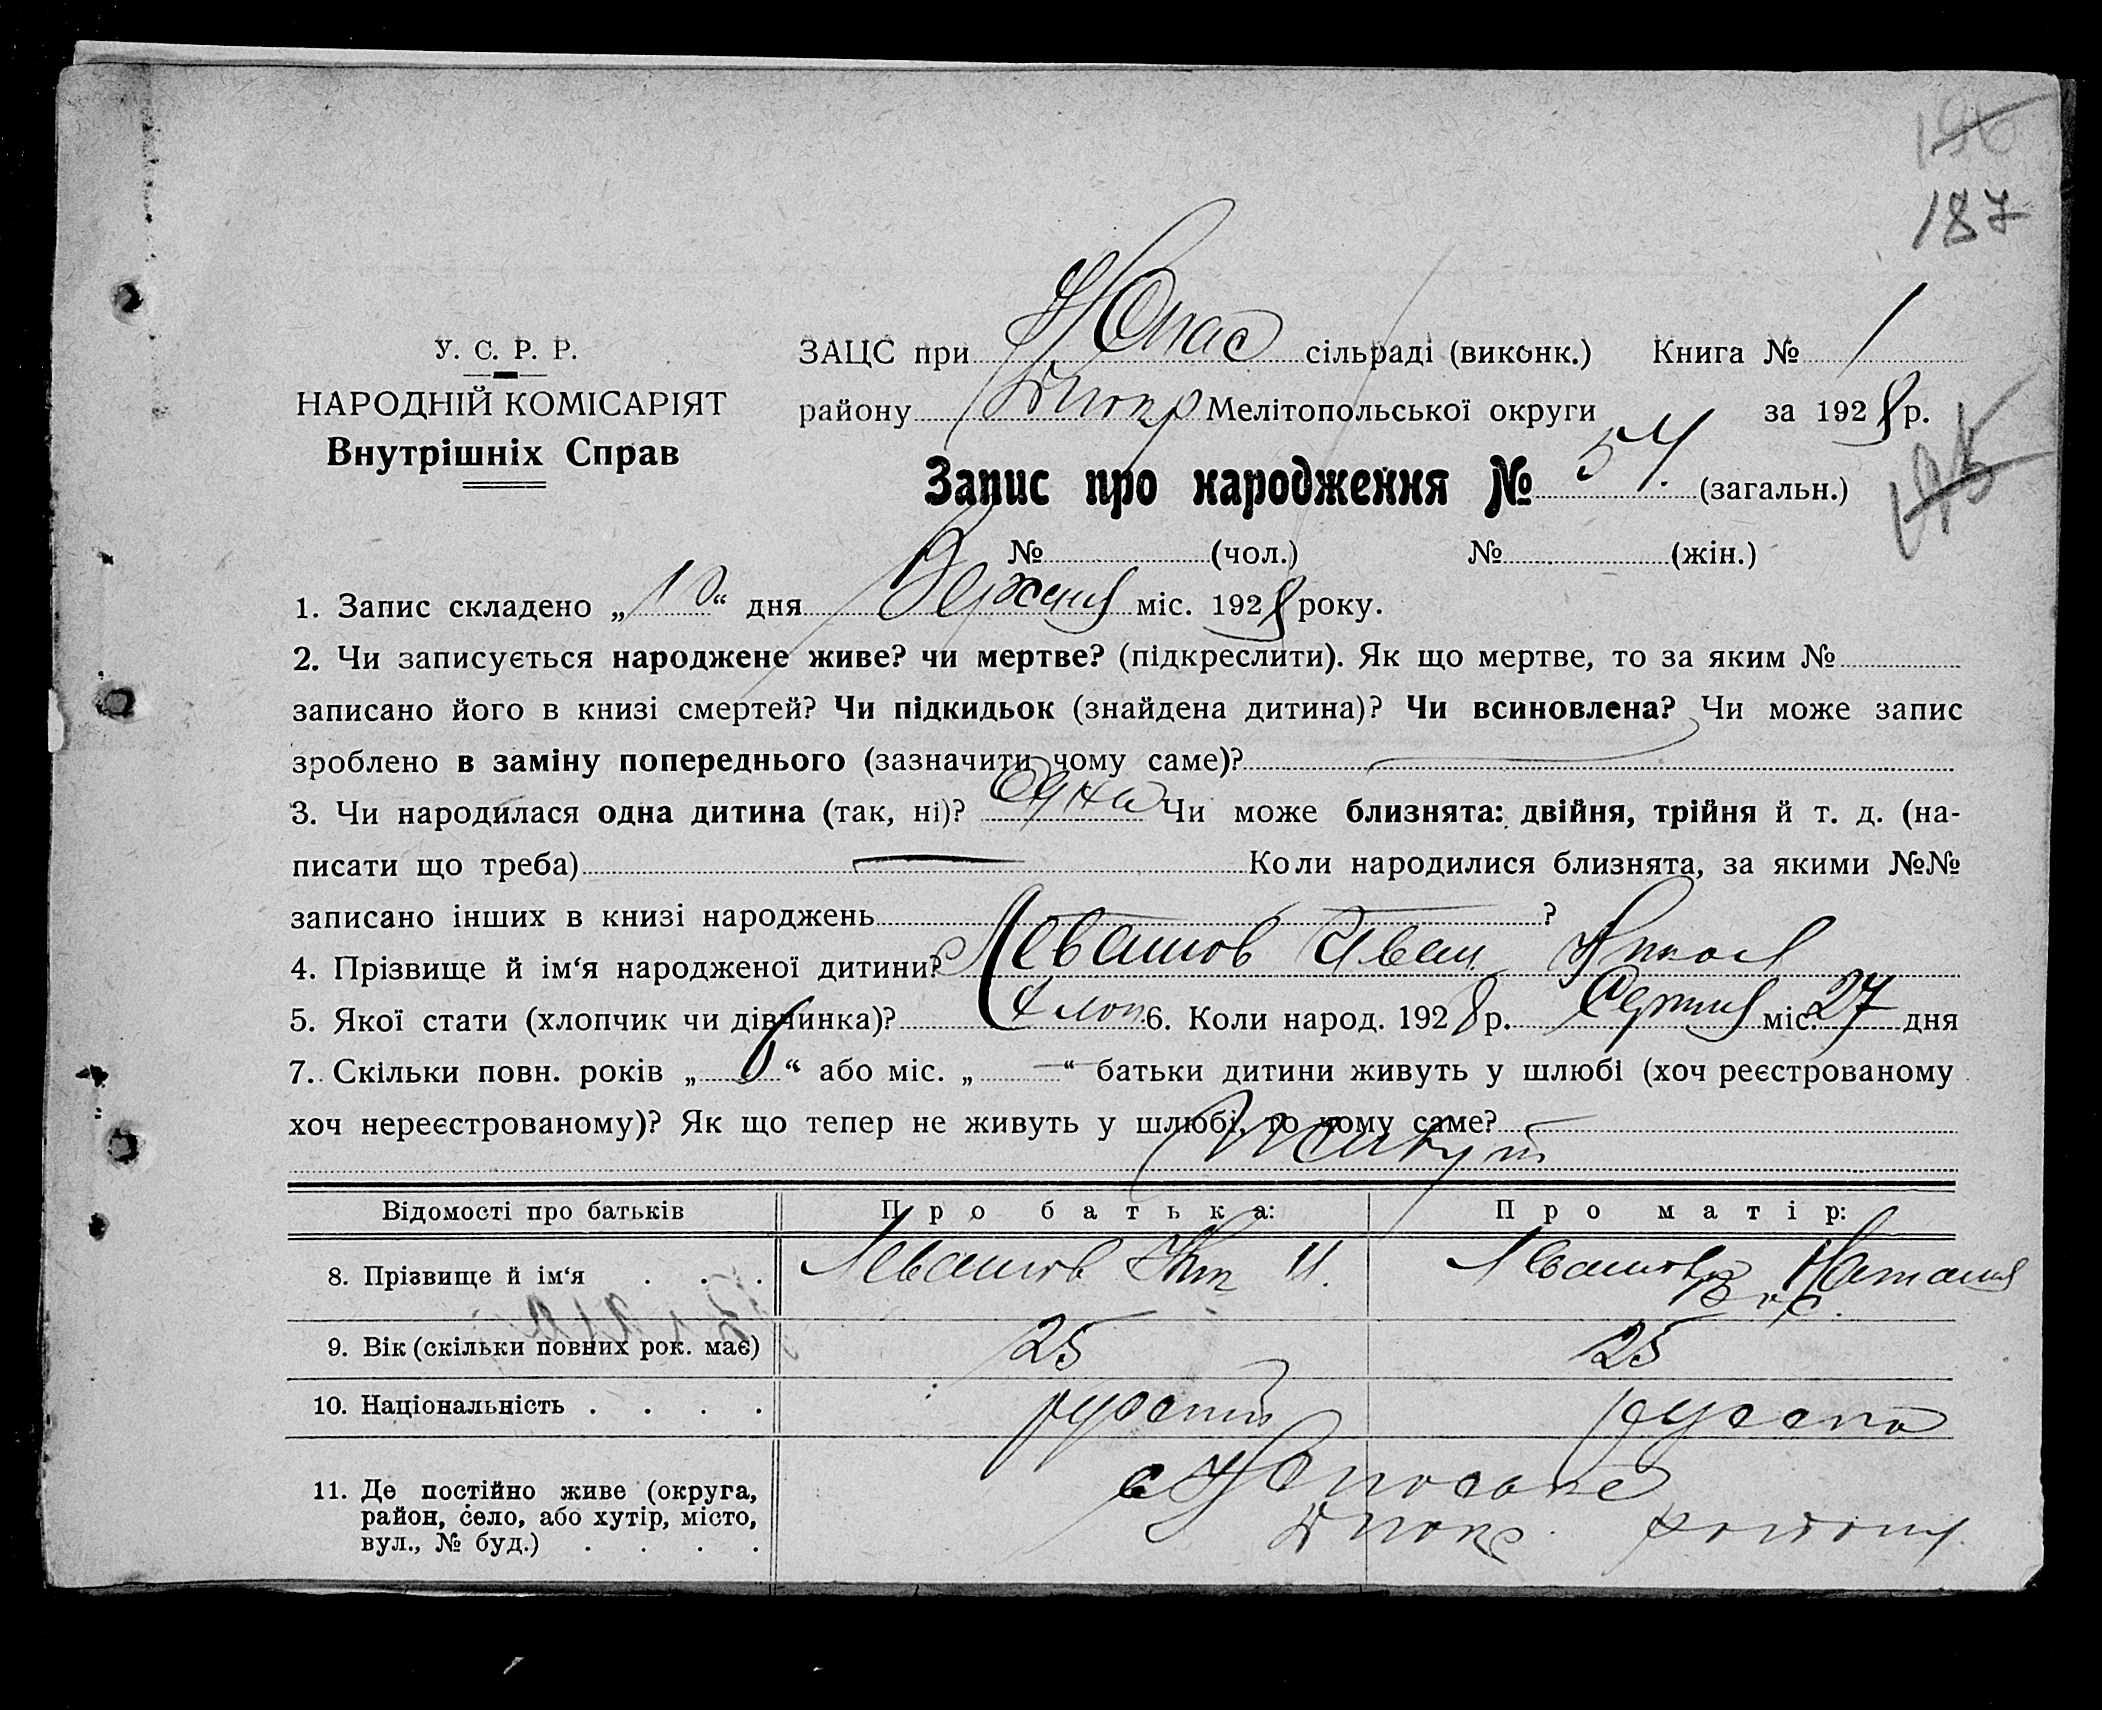 187
У. С. Р. Р.
НАРОДНІЙ КОМІСАРІЯТ
Внутрішніх Справ
ЗАЦС при сільраді (виконк.) Книга № 1
району Мелітопольської округи за 1928 р.
Запис про народження № 54 (загальн.)
№ (чол.) № (жін.)
1. Запис складено „10“ дня міс. 1928 року.
2. Чи записується народжене живе? чи мертве? (підкреслити). Як що мертве, то за яким №
записано його в книзі смертей? Чи підкидьок (знайдена дитина)? Чи всиновлена? Чи може запис
зроблено в заміну попереднього (зазначити чому саме)?
3. Чи народилася одна дитина (так, ні)? Одна Чи може близнята: двійня, трійня й т. д. (на-
писати що треба) Коли народилися близнята, за якими №№
записано інших в книзі народжень ?
4. Прізвище й ім‘я народженої дитини? Левашов Иван
5. Якої стати (хлопчик чи дівчинка)? хлоп. 6. Коли народ. 1928 р. Серпня міс. 27 дня
7. Скільки повн. років „6“ або міс. „—“ батьки дитини живуть у шлюбі (хоч реєстрованому
хоч нереєстрованому)? Як що тепер не живуть у шлюбі, то чому саме?
Живут
Відомості про батьків Про батька: Про матір:
8. Прізвище й ім‘я . . . Левашов Ник И. Левашова Наталия
9. Вік (скільки повних рок. має) 25 25
10. Національність . . . . русский русска
11. Де постійно живе (округа,
район, село, або хутір, місто,
вул., № буд.) . . . .